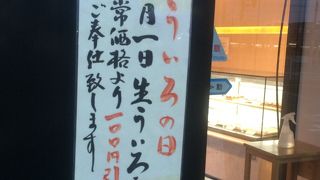 ういろの日
月一日生ういろ
常価格より一〇〇円引
ご奉仕致します